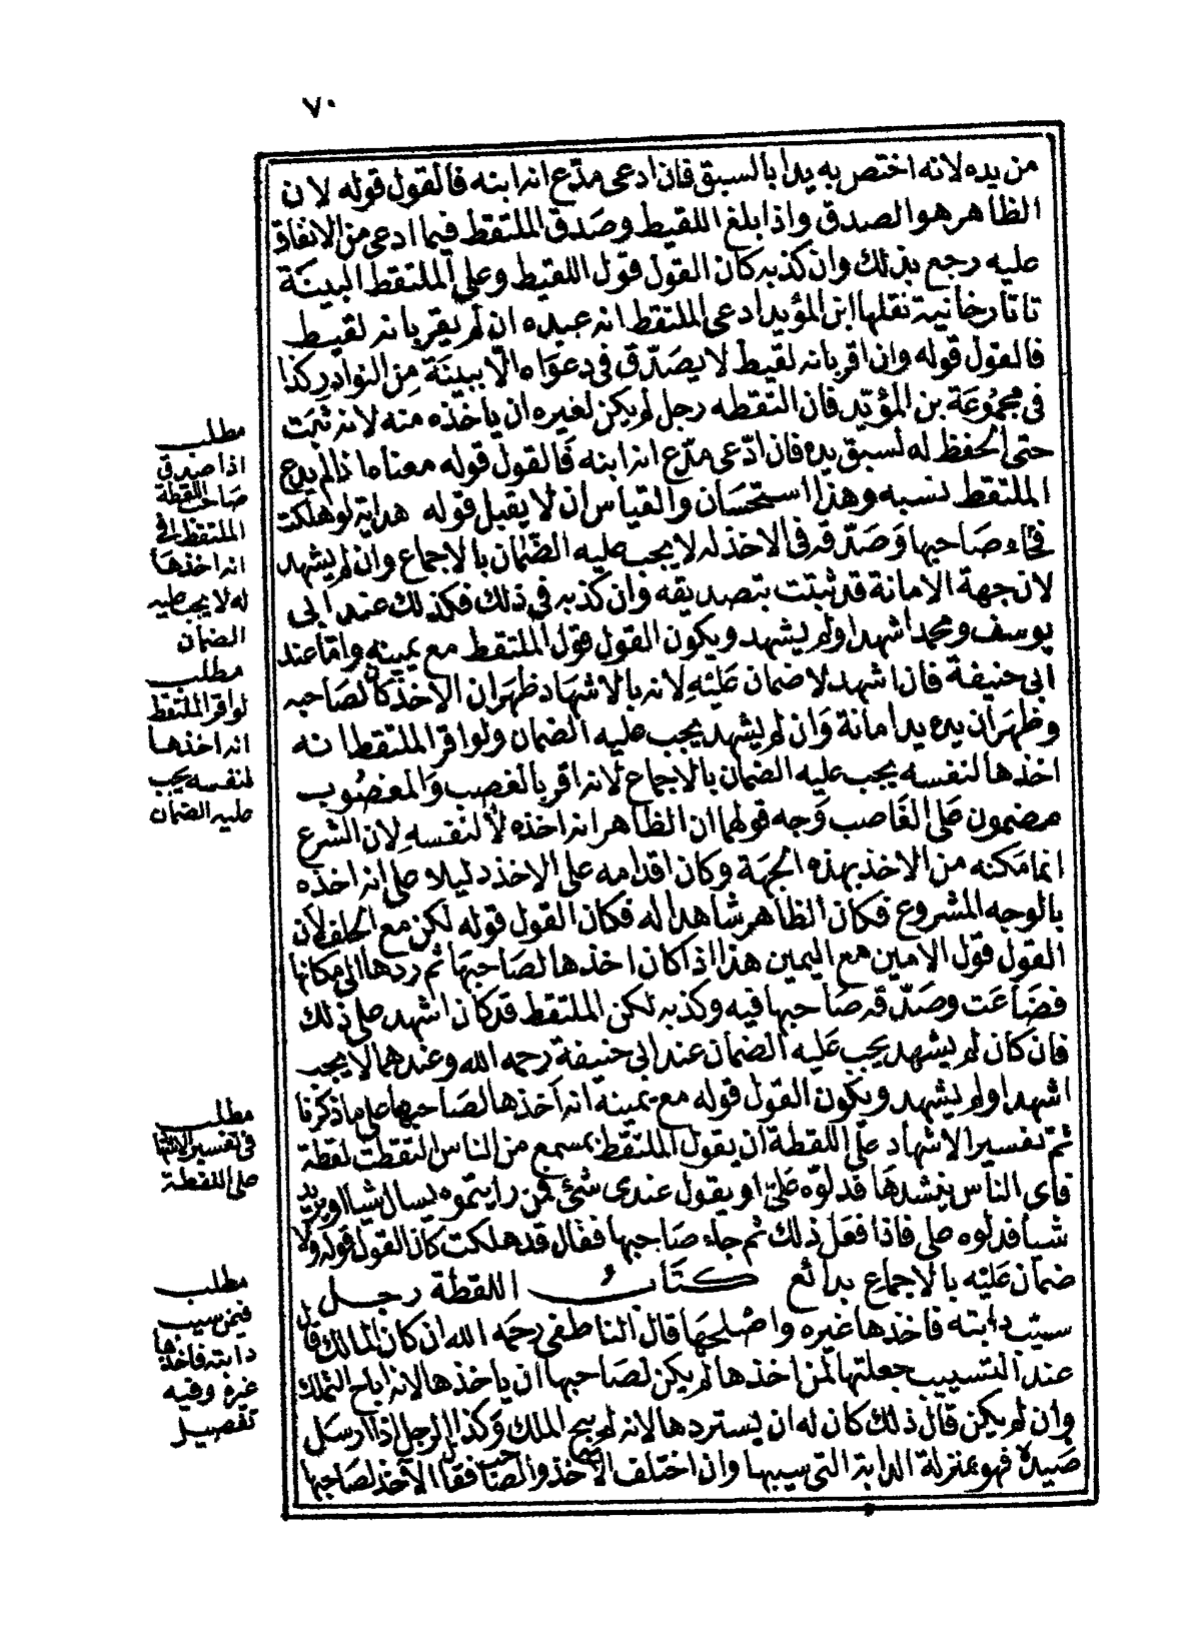 ٧٠
من يده لانه اختص به يدا بالسبق فان ادعى مدّع انه ابنه فالقول قوله لان
الظاهر هو الصدق واذا بلغ اللقيط وصدق الملتقط فيما ادعى من الانفاق
عليه رجع بذلك وان كذبه كان القول قول اللقيط وعلى الملتقط البينة
تاتارخانية نقلها ابن المؤيد ادعى الملتقط انه عبده ان لم يقر بانه لقيط
فالقول قوله وان اقر بانه لقيط لا يصدّق فى دعواه الّا ببينة من النوادر كذا
فى مجموعة بن المؤيد فان التقطه رجل لم يكن لغيره ان ياخذه منه لانه ثبت
حق الحفظ له لسبق يده فان ادّعى مدّع انه ابنه فالقول قوله معناه اذا لم يدع
الملتقط نسبه وهذا استحسان والقياس ان لا يقبل قوله هداية لو هلكت
فجاء صاحبها وصدّقه فى الاخذ له لا يجب عليه الضمان بالاجماع وان لم يشهد
لان جهة الامانة قد ثبتت بتصديقه وان كذبه فى ذلك فكذلك عند ابى
يوسف ومحمد اشهد اولم يشهد ويكون القول قول الملتقط مع يمينه وامّا عند
ابى حنيفة فان اشهد لا ضمان عليه لانه بالاشهاد ظهر ان الاخذ كان لصاحبه
وظهر ان يده يد امانة وان لم يشهد يجب عليه الضمان ولو اقر الملتقط انه
اخذها لنفسه يجب عليه الضمان بالاجماع لانه اقر بالغصب والمغصوب
مضمون على الغاصب وجه قولهما ان الظاهر انه اخذه لا لنفسه لان الشرع
انما مكنه من الاخذ بهذه الجهة وكان اقدامه على الاخذ دليلا على انه اخذه
بالوجه المشروع فكان الظاهر شاهدا له فكان القول قوله لكن مع الحلف لان
القول قول الامين مع اليمين هذا اذا كان اخذها لصاحبها ثم ردها الى مكانها
فضاعت وصدّقه صاحبها فيه وكذبه لكن الملتقط قد كان اشهد على ذلك
فان كان لم يشهد يجب عليه الضمان عند ابى حنيفة رحمه الله وعندهما لا يجب
اشهد اولم يشهد ويكون القول قوله مع يمينه انه اخذها لصاحبها على ما ذكرنا
ثم تفسير الاشهاد على اللقطة ان يقول الملتقط بمسمع من الناس التقطت لقطة
فاى الناس ينشدها فدلوه علىّ او يقول عندى شئ فمن رايتموه يسال شيا او يريد
شيا فدلوه على فاذا فعل ذلك ثم جاء صاحبها فقال قد هلكت كان القول قوله ولا
ضمان عليه بالاجماع بدائع كتاب اللقطة رجل
سيّب دابته فاخذها غيره واصلحها قال الناطفى رحمه الله ان كان المالك قال
عند التسييب جعلتها لمن اخذها لم يكن لصاحبها ان ياخذها لانه اباح التملك
وان لم يكن قال ذلك كان له ان يستردها لانه لم يبح الملك وكذا الرجل اذا ارسل
صيده فهو بمنزلة الدابة التى سيبها وان اختلف الآخذ والصاحب فقال الآخذ لصاحبها
مطلب
اذا صدق
صاحب اللقطة
الملتقط فى
انه اخذها
له لا يجب عليه
الضمان
مطلب
لو اقر الملتقط
انه اخذها
لنفسه يجب
عليه الضمان
مطلب
فى تفسير الاشهاد
على اللقطة
مطلب
فيمن سيب
دابته فاخذها
غيره وفيه
تفصيل